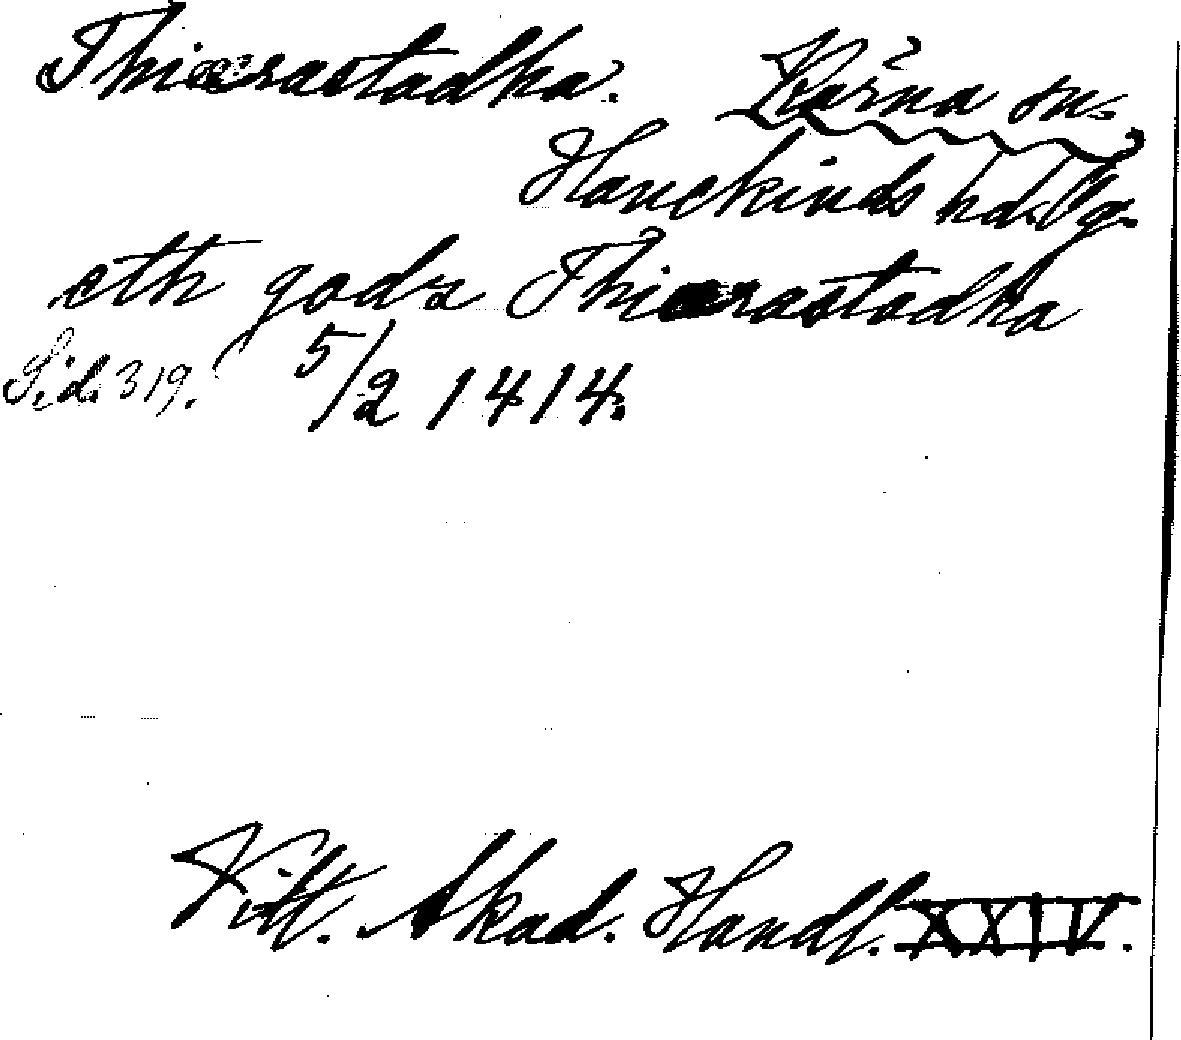 Thiærastadha. Kärna sn.
Hanekinds hd. Ög.
eth godz Thiærastadha
Sid. 319. 5/2 1414.
Vitt. Akad. Handl. XXIV.